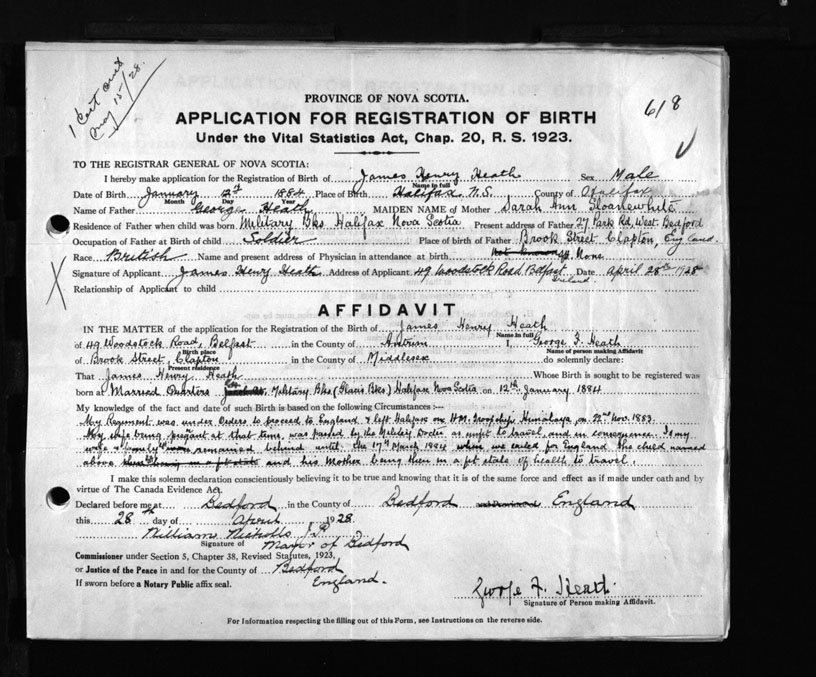 1 Cert out
May 15/28.
618
PROVINCE OF NOVA SCOTIA.
APPLICATION FOR REGISTRATION OF BIRTH
Under the Vital Statistics Act, Chap. 20, R. S. 1923.
TO THE REGISTRAR GENERAL OF NOVA SCOTIA:
I hereby make application for the Registration of Birth of James Henry Heath Sex Male
Name in full
Date of Birth January 12th 1884 Place of Birth Halifax N.S. County of Halifax
Month Day Year
Name of Father George Heath MAIDEN NAME of Mother Sarah Ann Sloanewhite
Residence of Father when child was born Military Bks Halifax Nova Scotia Present address of Father 27 Park Rd. West. Bedford
Occupation of Father at Birth of child Soldier Place of Birth of Father Brook Street, Clapton, England.
Race British Name and present address of Physician in attendance at birth not known None
Signature of Applicant James Henry Heath Address of Applicant 49 Woodstock Road Belfast Date April 28th 1928
Ireland.
Relationship of Applicant to child
AFFIDAVIT
IN THE MATTER of the application for the Registration of the Birth of James Henry Heath
Name in full
of 49 Woodstock Road, Belfast in the County of Antrim I, George F. Heath
Birth place Name of person making Affidavit
of Brook Street, Clapton in the County of Middlesex do solemnly declare:
Present residence
That James Henry Heath Whose Birth is sought to be registered was
born at Married Quarters Military Bks (Glacis Bks) Halifax Nova Scotia on 12th January 1884
My knowledge of the fact and date of such Birth is based on the following Circumstances :—
My Regiment was under Orders to proceed to England & left Halifax on H.M. Troopship Himalaya on 22nd Nov. 1883.
My wife being pregnant at that time, was passed by the Military Doctor as unfit to travel, and in consequence I, my
wife & family remained behind until the 17th March 1884 when we sailed for England the child named
above and his Mother being then in a fit state of health to travel.
I make this solemn declaration conscientiously believing it to be true and knowing that it is of the same force and effect as if made under oath and by
virtue of The Canada Evidence Act.
Declared before me at Bedford in the County of Bedford England
this 28th day of April 1928.
William Nicholls J.P.
Signature of Mayor of Bedford
Commissioner under Section 5, Chapter 38, Revised Statutes, 1923,
or Justice of the Peace in and for the County of Bedford
England.
If sworn before a Notary Public affix seal.
George F. Heath
Signature of Person making Affidavit.
For Information respecting the filling out of this Form, see Instructions on the reverse side.